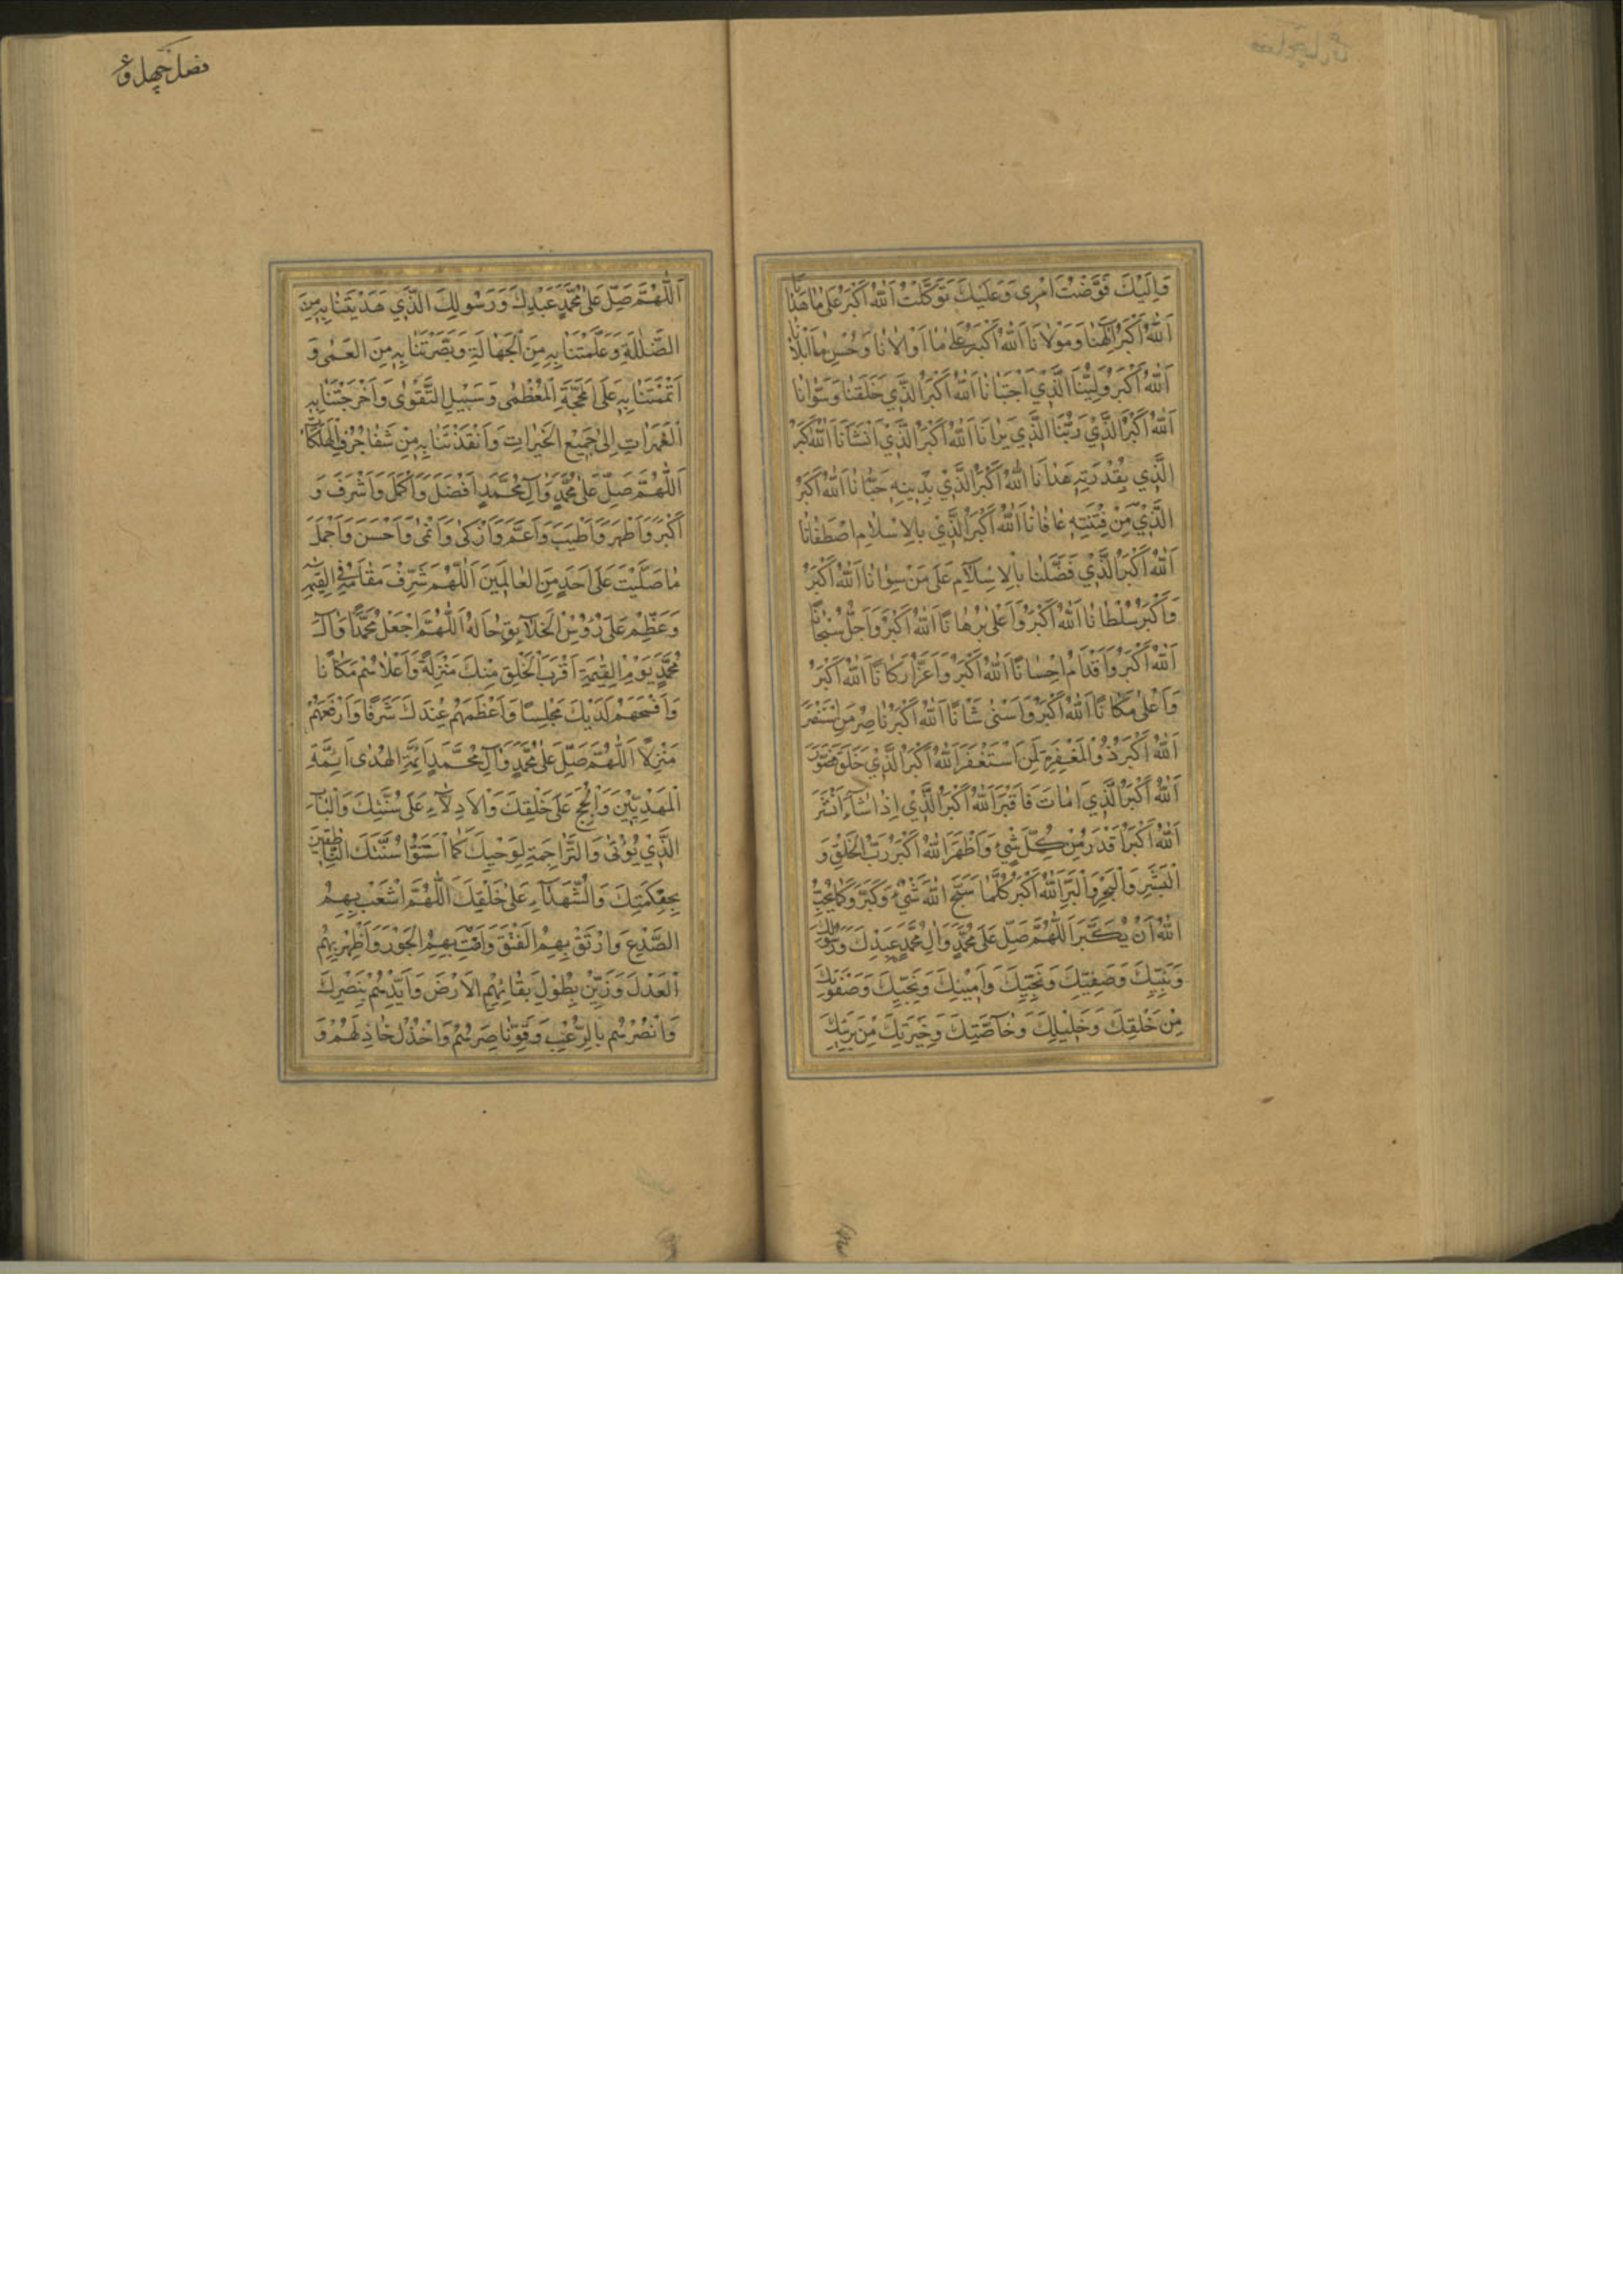 وَاِلَيْكَ فَوَّضْتُ اَمْرِي وَعَلَيْكَ تَوَكَّلْتُ اَللّٰهُ اَكْبَرُ عَلىٰ مٰا هَدٰانٰا
اَللّٰهُ اَكْبَرُ اِلٰهُنٰا وَمَوْلاٰنٰا اَللّٰهُ اَكْبَرُ عَلىٰ مٰا اَوْلاٰنٰا وَحُسْنِ مٰا اَبْلاٰنٰا
اَللّٰهُ اَكْبَرُ وَلِيُّنَا الَّذِي اجْتَبٰانٰا اَللّٰهُ اَكْبَرُ الَّذِي خَلَقَنٰا وَسَوّٰانٰا
اَللّٰهُ اَكْبَرُ الَّذِي رَبُّنَا الَّذِي بَرٰانٰا اَللّٰهُ اَكْبَرُ الَّذِي اَنْشَاَنٰا اَللّٰهُ اَكْبَرُ
الَّذِي بِقُدْرَتِهِ هَدٰانٰا اَللّٰهُ اَكْبَرُ الَّذِي بِدِينِهِ حَبٰانٰا اَللّٰهُ اَكْبَرُ
الَّذِي مِنْ فِتْنَتِهِ عٰافٰانٰا اَللّٰهُ اَكْبَرُ الَّذِي بِالاِسْلاٰمِ اصْطَفٰانٰا
اَللّٰهُ اَكْبَرُ الَّذِي فَضَّلَنٰا بِالْاِسْلاٰمِ عَلىٰ مَنْ سِوٰانٰا اَللّٰهُ اَكْبَرُ
وَاَكْبَرُ سُلْطٰانًا اَللّٰهُ اَكْبَرُ وَاَعْلىٰ بُرْهٰانًا اَللّٰهُ اَكْبَرُ وَاَجَلُّ سُبْحٰانًا
اَللّٰهُ اَكْبَرُ وَاَقْدَمُ اِحْسٰانًا اَللّٰهُ اَكْبَرُ وَاَعَزُّ اَرْكٰانًا اَللّٰهُ اَكْبَرُ
وَاَعْلىٰ مَكٰانًا اَللّٰهُ اَكْبَرُ وَاَسْنىٰ شَاْنًا اَللّٰهُ اَكْبَرُ نٰاصِرُ مَنِ اسْتَنْصَرَ
اَللّٰهُ اَكْبَرُ ذُو الْمَغْفِرَةِ لِمَنِ اسْتَغْفَرَ اَللّٰهُ اَكْبَرُ الَّذِي خَلَقَ فَصَوَّرَ
اَللّٰهُ اَكْبَرُ الَّذِي اَمٰاتَ فَاَقْبَرَ اَللّٰهُ اَكْبَرُ الَّذِي اِذٰا شٰاءَ اَنْشَرَ
اَللّٰهُ اَكْبَرُ اَقْدَرُ مِنْ كُلِّ شَيْءٍ وَاَظْهَرُ اَللّٰهُ اَكْبَرُ رَبُّ الْخَلْقِ وَ
الْبَشَرِ وَالْبَحْرِ وَالْبَرِّ اَللّٰهُ اَكْبَرُ كُلَّمٰا سَبَّحَ اللّٰهَ شَيْءٌ وَكَبَّرَ وَكَمٰا يُحِبُّ
اللّٰهُ اَنْ يُكَبَّرَ اَللّٰهُمَّ صَلِّ عَلىٰ مُحَمَّدٍ وَآلِ مُحَمَّدٍ عَبْدِكَ وَرَسُولِكَ
وَنَبِيِّكَ وَصَفِيِّكَ وَنَجِيِّكَ وَاَمِينِكَ وَنَجِيبِكَ وَصَفْوَتِكَ
مِنْ خَلْقِكَ وَخَلِيلِكَ وَخٰاصَّتِكَ وَخِيَرَتِكَ مِنْ بَرِيَّتِكَ
فصل چهل و
اَللّٰهُمَّ صَلِّ عَلىٰ مُحَمَّدٍ عَبْدِكَ وَرَسُولِكَ الَّذِي هَدَيْتَنٰا بِهِ مِنَ
الضَّلاٰلَةِ وَعَلَّمْتَنٰا بِهِ مِنَ الْجَهٰالَةِ وَبَصَّرْتَنٰا بِهِ مِنَ الْعَمىٰ وَ
اَقَمْتَنٰا بِهِ عَلَى الْمَحَجَّةِ الْعُظْمىٰ وَسَبِيلِ التَّقْوىٰ وَاَخْرَجْتَنٰا بِهِ
الْغَمَرٰاتِ اِلىٰ جَمِيعِ الْخَيْرٰاتِ وَاَنْقَذْتَنٰا بِهِ مِنْ شَفٰا جُرُفِ الْهَلَكٰاتِ
اَللّٰهُمَّ صَلِّ عَلىٰ مُحَمَّدٍ وَآلِ مُحَمَّدٍ اَفْضَلَ وَاَكْمَلَ وَاَشْرَفَ وَ
اَكْبَرَ وَاَطْهَرَ وَاَطْيَبَ وَاَعَمَّ وَاَزْكىٰ وَاَنْمىٰ وَاَحْسَنَ وَاَجْمَلَ
مٰا صَلَّيْتَ عَلىٰ اَحَدٍ مِنَ الْعٰالَمِينَ اَللّٰهُمَّ شَرِّفْ مَقٰامَهُ فِي الْقِيٰمَةِ
وَعَظِّمْ عَلىٰ رُؤُسِ الْخَلاٰيِقِ حٰالَهُ اَللّٰهُمَّ اجْعَلْ مُحَمَّدًا وَآلَ
مُحَمَّدٍ يَوْمَ الْقِيٰمَةِ اَقْرَبَ الْخَلْقِ مِنْكَ مَنْزِلَةً وَاَعْلاٰهُمْ مَكٰانًا
وَاَفْسَحَهُمْ لَدَيْكَ مَجْلِسًا وَاَعْظَمَهُمْ عِنْدَكَ شَرَفًا وَاَرْفَعَهُمْ
مَنْزِلاً اَللّٰهُمَّ صَلِّ عَلىٰ مُحَمَّدٍ وَآلِ مُحَمَّدٍ اَئِمَّةِ الْهُدىٰ اَئِمَّةِ
الْمَهْدِيِّينَ وَالْحُجَجِ عَلىٰ خَلْقِكَ وَالاَدِلّاٰءِ عَلىٰ سُنَّتِكَ وَالْبٰابِ
الَّذِي يُؤْتىٰ وَالتَّرٰاجِمَةِ لِوَحْيِكَ كَمَا اسْتَنُّوا سُنَّتَكَ النّٰاطِقِينَ
بِحِكْمَتِكَ وَالشُّهَدٰاءِ عَلىٰ خَلْقِكَ اَللّٰهُمَّ اشْعَبْ بِهِمُ
الصَّدْعَ وَارْتُقْ بِهِمُ الْفَتْقَ وَاَمِتْ بِهِمُ الْجَوْرَ وَاَظْهِرْ بِهِمُ
الْعَدْلَ وَزَيِّنْ بِطُولِ بَقٰائِهِمُ الاَرْضَ وَاَيِّدْهُمْ بِنَصْرِكَ
وَانْصُرْهُمْ بِالرُّعْبِ وَقَوِّ نٰاصِرَهُمْ وَاخْذُلْ خٰاذِلَهُمْ وَ